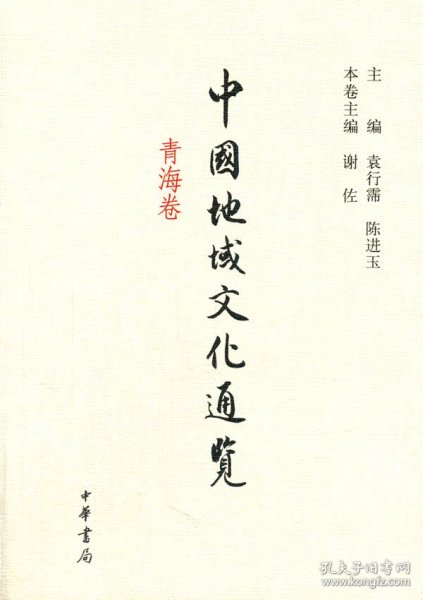 主 编 袁行霈 陈进玉
本卷主编 谢佐
中國地域文化通覽
青海卷
中華書局
孔夫子旧书网
www.kongfz.com